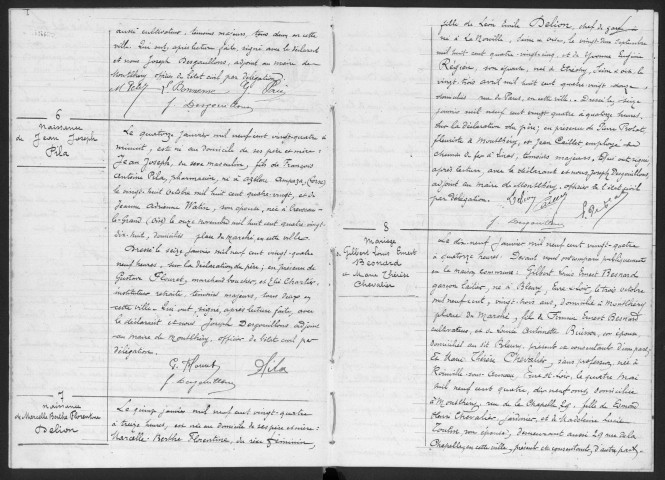 aussi cultivateur, témoins majeurs, tous deux en cette
ville. Qui ont, après lecture faite, signé avec le déclarant
et nous Joseph Desgouillons, adjoint au maire de
Montlhéry officier de l'état civil par délégation.
6
Naissance
de Jean Joseph
Pila
Le quatorze janvier mil neuf cent vingt-quatre à
minuit, est né au domicile de ses père et mère:
Jean Joseph, du sexe masculin, fils de François
Antoine Pila, pharmacien, né à (Corse)
le vingt-huit octobre mil huit cent quatre-vingt, et de
Jeanne Adrienne son épouse, née à
le-Grand (Oise) le onze novembre mil huit cent quatre-vingt
dix-huit, domiciliés place du marché, en cette ville.
Dressé le seize janvier mil neuf cent vingt-quatre
neuf heures, sur la déclaration du père; en présence de
Gustave marchand boucher, et Elie Charlier
instituteur retraité, témoins majeurs, tous deux en
cette ville. Qui ont signé, après lecture faite, avec
le déclarant et nous Joseph Desgouillons adjoint
au maire de Montlhéry, officier de l'état civil par
délégation.
Pila
7
Naissance
de Marcelle Berthe Florentine
Delion
Le quinze janvier mil neuf cent vingt-quatre
à treize heures, est née au domicile de ses père et mère:
Marcelle Berthe Florentine, du sexe féminin,
fille de Léon Emile Delion, chef de gare
né à La Norville, Seine et Oise, le vingt-neuf septembre
mil huit cent quatre-vingt-cinq, et de Yvonne Eugénie
son épouse, née à Etréchy, Seine et Oise, le
vingt-trois avril mil huit cent quatre-vingt seize,
domiciliés rue de Paris, en cette ville. Dressé le seize
janvier mil neuf cent vingt-quatre à quatorze heures,
sur la déclaration du père; en présence de Pierre
fleuriste à Montlhéry, et Jean Caillet employé au
chemin de fer à témoins majeurs, Qui ont signé
après lecture, avec le déclarant et nous Joseph Desgouillons,
adjoint au maire de Montlhéry, officier de l'état civil
par délégation.
8
Mariage
Gilbert Louis Ernest
Besnard
et Marie Thérèse
Chevalier
Le dix-neuf janvier mil neuf cent vingt-quatre
à quatorze heures. Devant nous ont comparu publiquement
en la maison commune: Gilbert Louis Ernest Besnard
garçon laitier, né à Bleury, Eure et Loir, le trois octobre
mil neuf cent, vingt-trois ans, domicilié à Montlhéry
place du Marché, fils de Ernest Besnard
cultivateur, et de Louise Antoinette Buisson, son épouse,
domiciliés au dit Bleury, présents et consentants d'une part;
Et Marie Thérèse Chevalier, sans profession, née à
Roinville sous Auneau, Eure et Loir, le quatre mai
mil neuf cent quatre, dix-neuf ans, domiciliée
à Montlhéry, rue de la Chapelle, 29, fille de Edmond
Henri Chevalier, jardinier, et de Madeleine Lucie
son épouse, demeurant aussi 29 rue de la
Chapelle, en cette ville, présents et consentants, d'autre part.